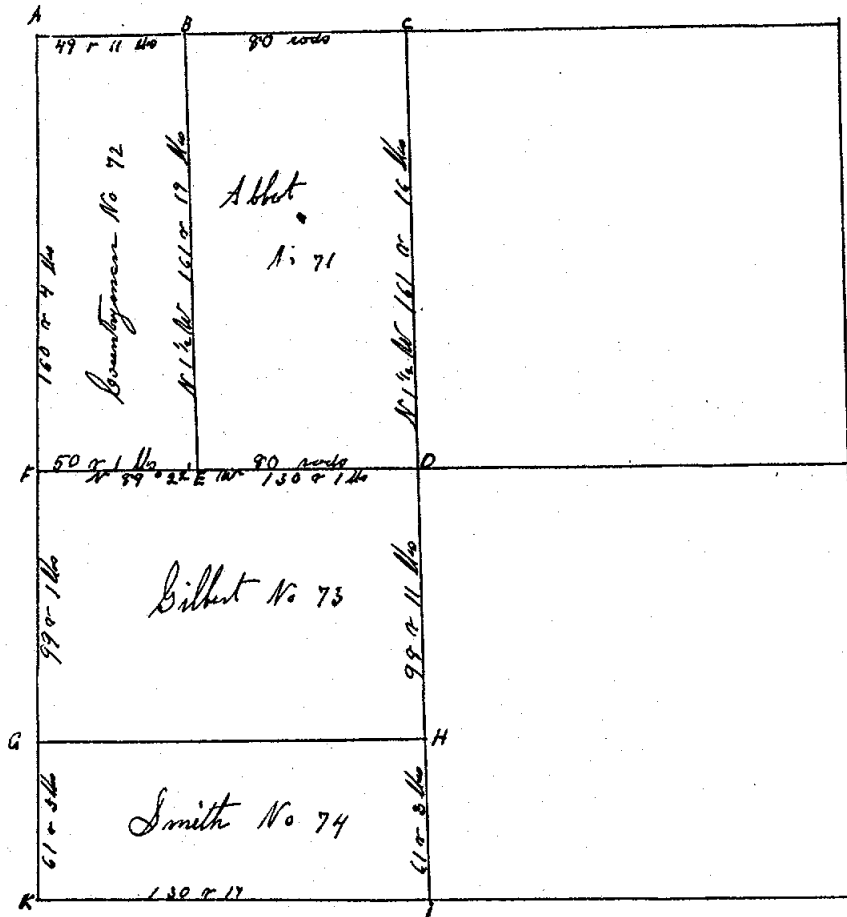 A B C
49 r 11 lks 80 rods
160 r 4 lks
Countrymen No 72
N 1 ½ W 161 r 19 lks
Abbot
No 71
N 1 ½ W 161 r 16 lks
F 50 r 1 lks 80 rods D
N 89° 22' E 130 r 1 lks
99 r 1 lks
Gilbert No 73
99 r 11 lks
G H
61 r 3 lks
Smith No 74
61 r 3 lks
K 130 r 17 I